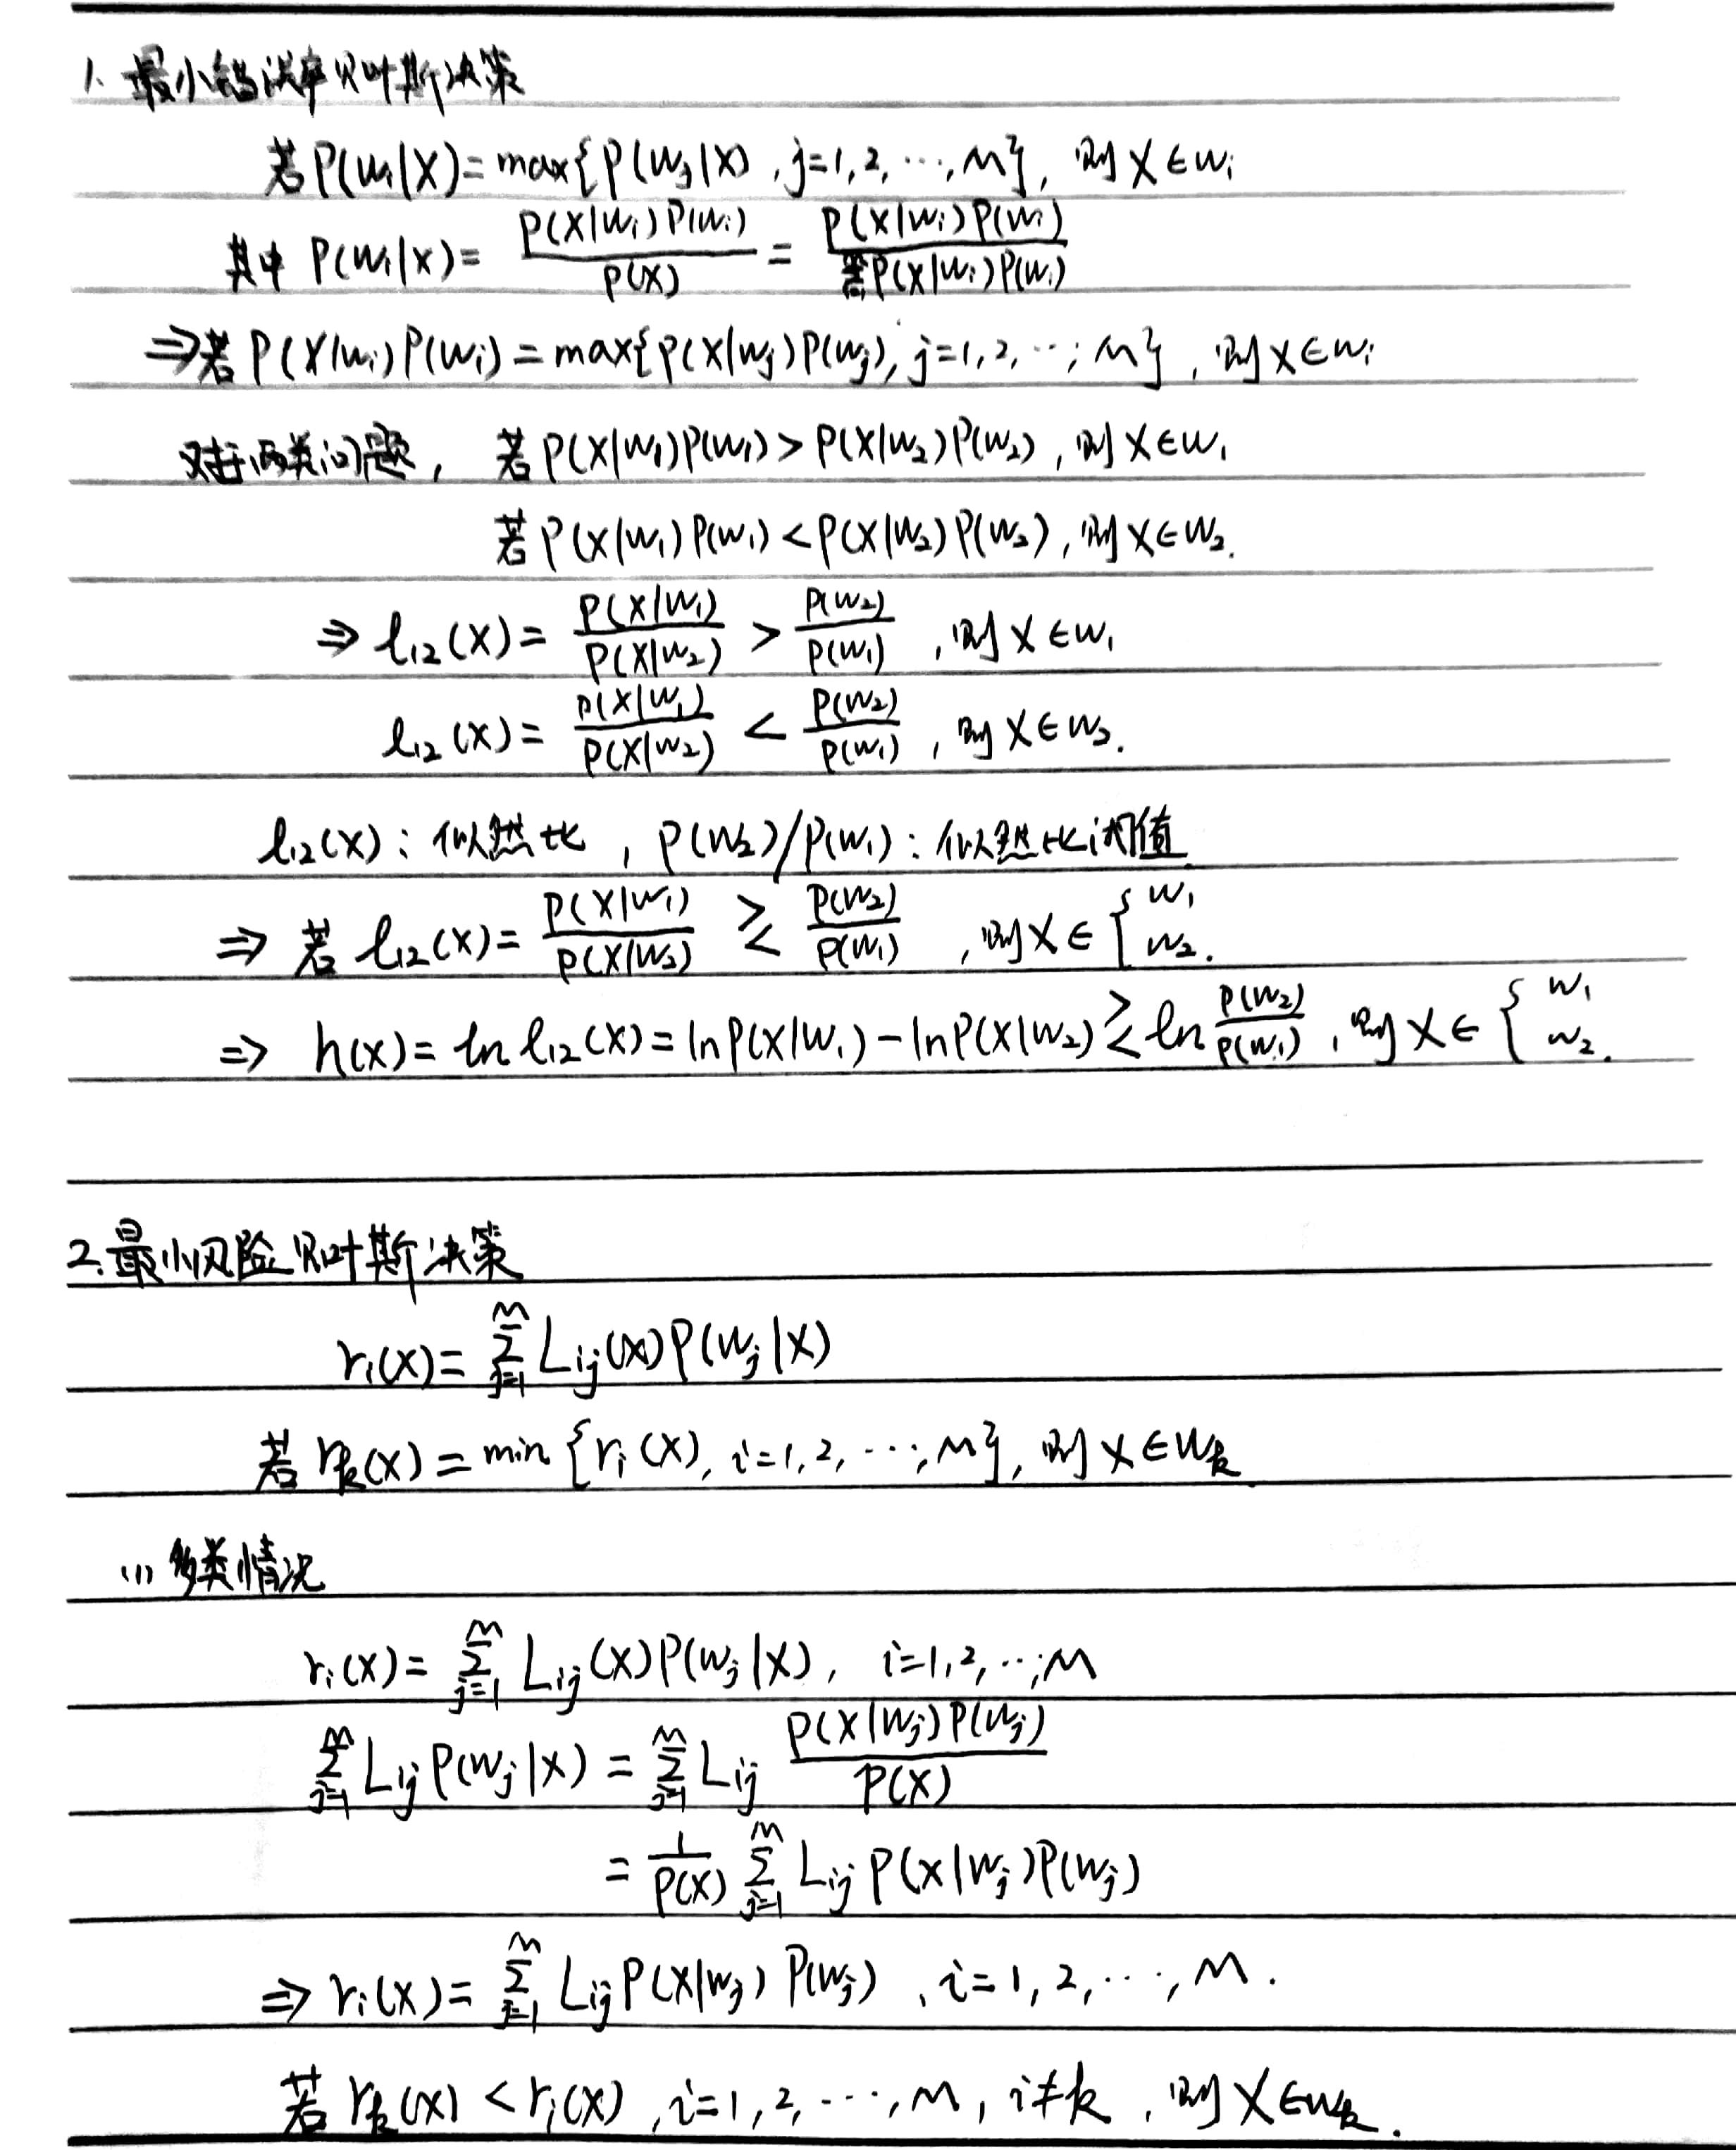 1. 最小错误率贝叶斯决策
若P(w₁|X)=max{P(wⱼ|X), j=1,2,…,M}, 则X∈wᵢ
其中 P(wᵢ|X)= P(X|wᵢ)P(wᵢ)/P(X) = P(X|wᵢ)P(wᵢ)/P(X|wᵢ)P(wᵢ)
⇒若P(X|wᵢ)P(wᵢ)=max{P(X|wⱼ)P(wⱼ), j=1,2,…,M}, 则X∈wᵢ
对于两类问题, 若P(X|w₁)P(w₁)>P(X|w₂)P(w₂), 则X∈w₁
若P(X|w₁)P(w₁)<P(X|w₂)P(w₂), 则X∈w₂.
⇒ l₁₂(X)= P(X|w₁)/P(X|w₂) > P(w₂)/P(w₁), 则X∈w₁
l₁₂(X)= P(X|w₁)/P(X|w₂) < P(w₂)/P(w₁), 则X∈w₂.
l₁₂(X): 似然比, P(w₂)/P(w₁): 似然比阈值.
⇒ 若 l₁₂(X)= P(X|w₁)/P(X|w₂) ≷ P(w₂)/P(w₁), 则X∈{w₁ w₂.
⇒ h(X)=ln l₁₂(X)=lnP(X|w₁)-lnP(X|w₂) ≷ ln P(w₂)/P(w₁), 则X∈{w₁ w₂.
2. 最小风险贝叶斯决策
rᵢ(X)= ∑ⱼ₌₁ᴹ Lᵢⱼ(X)P(wⱼ|X)
若rₖ(X)=min{rᵢ(X), i=1,2,…,M}, 则X∈wₖ.
(1) 多类情况
rᵢ(X)= ∑ⱼ₌₁ᴹ Lᵢⱼ(X)P(wⱼ|X), i=1,2,…,M
∑ⱼ₌₁ᴹ LᵢⱼP(wⱼ|X) = ∑ⱼ₌₁ᴹ Lᵢⱼ P(X|wⱼ)P(wⱼ)/P(X)
= 1/P(X) ∑ⱼ₌₁ᴹ LᵢⱼP(X|wⱼ)P(wⱼ)
⇒ rᵢ(X)= ∑ⱼ₌₁ᴹ LᵢⱼP(X|wⱼ)P(wⱼ), i=1,2,…,M.
若rₖ(X)<rᵢ(X), i=1,2,…,M, i≠k, 则X∈wₖ.